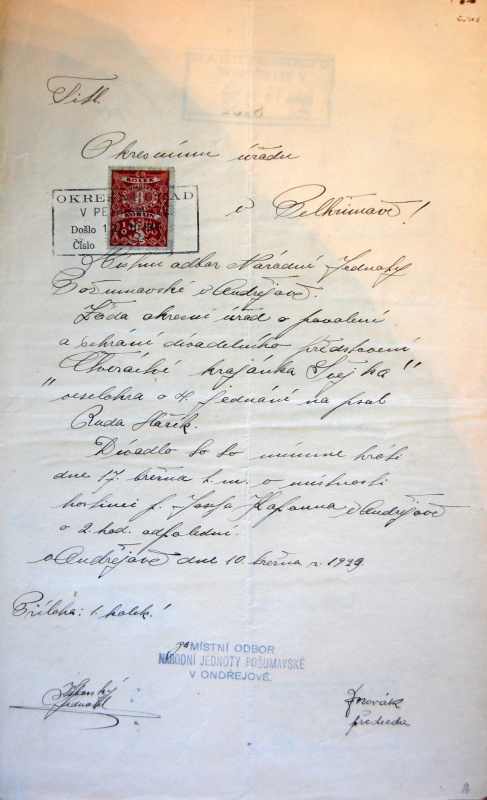 Titl.
Okresnímu úřadu
v Pelhřimově!
KOLEK
1
OKRES ÚŘAD
V PE
Došlo
Číslo
Místní odbor Národní Jednoty
Pošumavské v Ondřejově.
Žádá okresní úřad o povolení
a sehrání divadelního představení
"Čtveráctví krajánka Švejka"
veselohra o 4 jednání na psal
Ruda Mařík.
Divadlo to to míníme hráti
dne 17. března t. m. v místnosti
hostinci p. Josefa v Ondřejově
o 2. hod. odpolední.
v Ondřejově dne 10. března r. 1929.
Příloha: 1. kolek!
MÍSTNÍ ODBOR
NÁRODNÍ JEDNOTY POŠUMAVSKÉ
V ONDŘEJOVĚ.
jednatel
JNovák
předseda